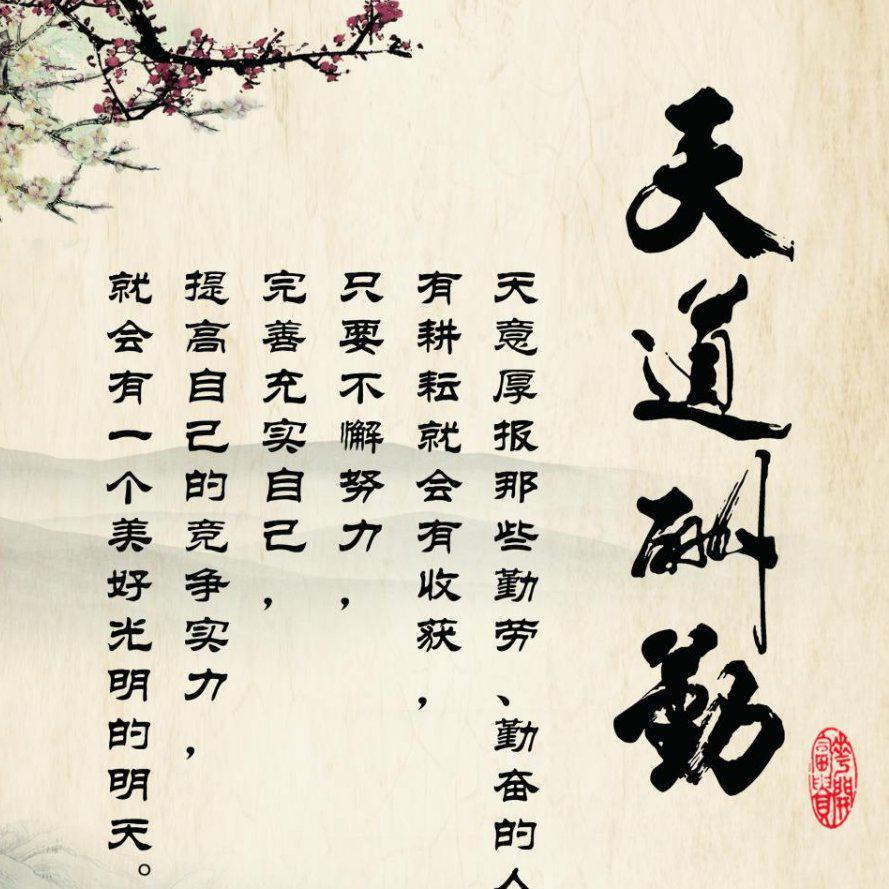 天道酬勤
天意厚报那些勤劳、勤奋的人
有耕耘就会有收获,
只要不懈努力,
完善充实自己,
提高自己的竞争实力,
就会有一个美好光明的明天。
花開富貴